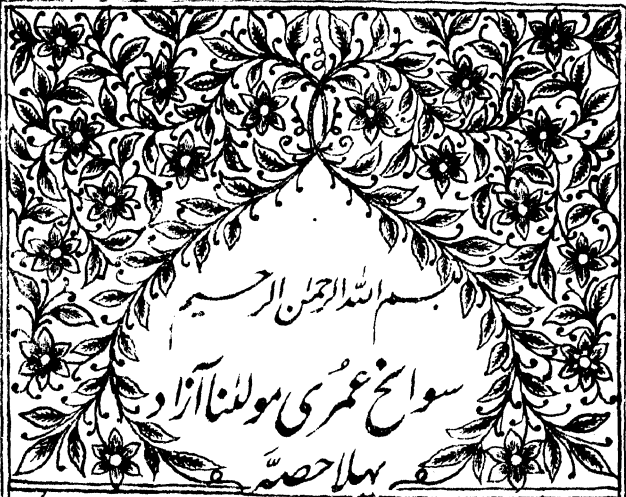 بسم اللہ الرحمٰن الرحیم
سوانح عمُری مولٰنا آزاد
پہلا حصہَ